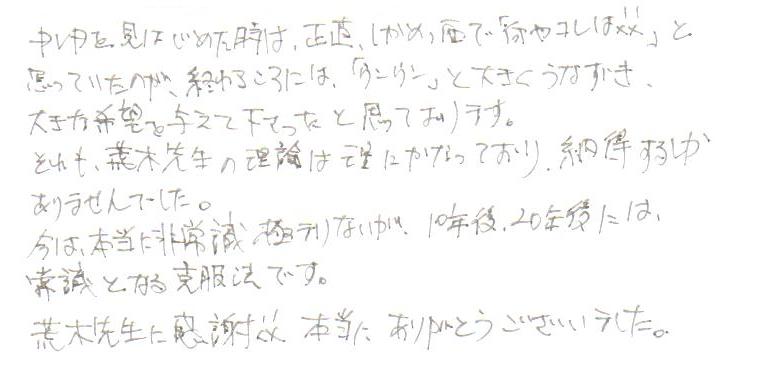 を見はじめた時は、正直、しかめっ面で「何やコレは××」と
思っていたのが、終わるころには、「ウンウン」と大きくうなずき、
大きな希望を与えて下さったと思っております。
それも、荒木先生の理論は理にかなっており、納得するしか
ありませんでした。
今は、本当に非常識極まりないが、10年後、20年後には、
常識となる克服法です。
荒木先生に感謝 本当に ありがとうございました。